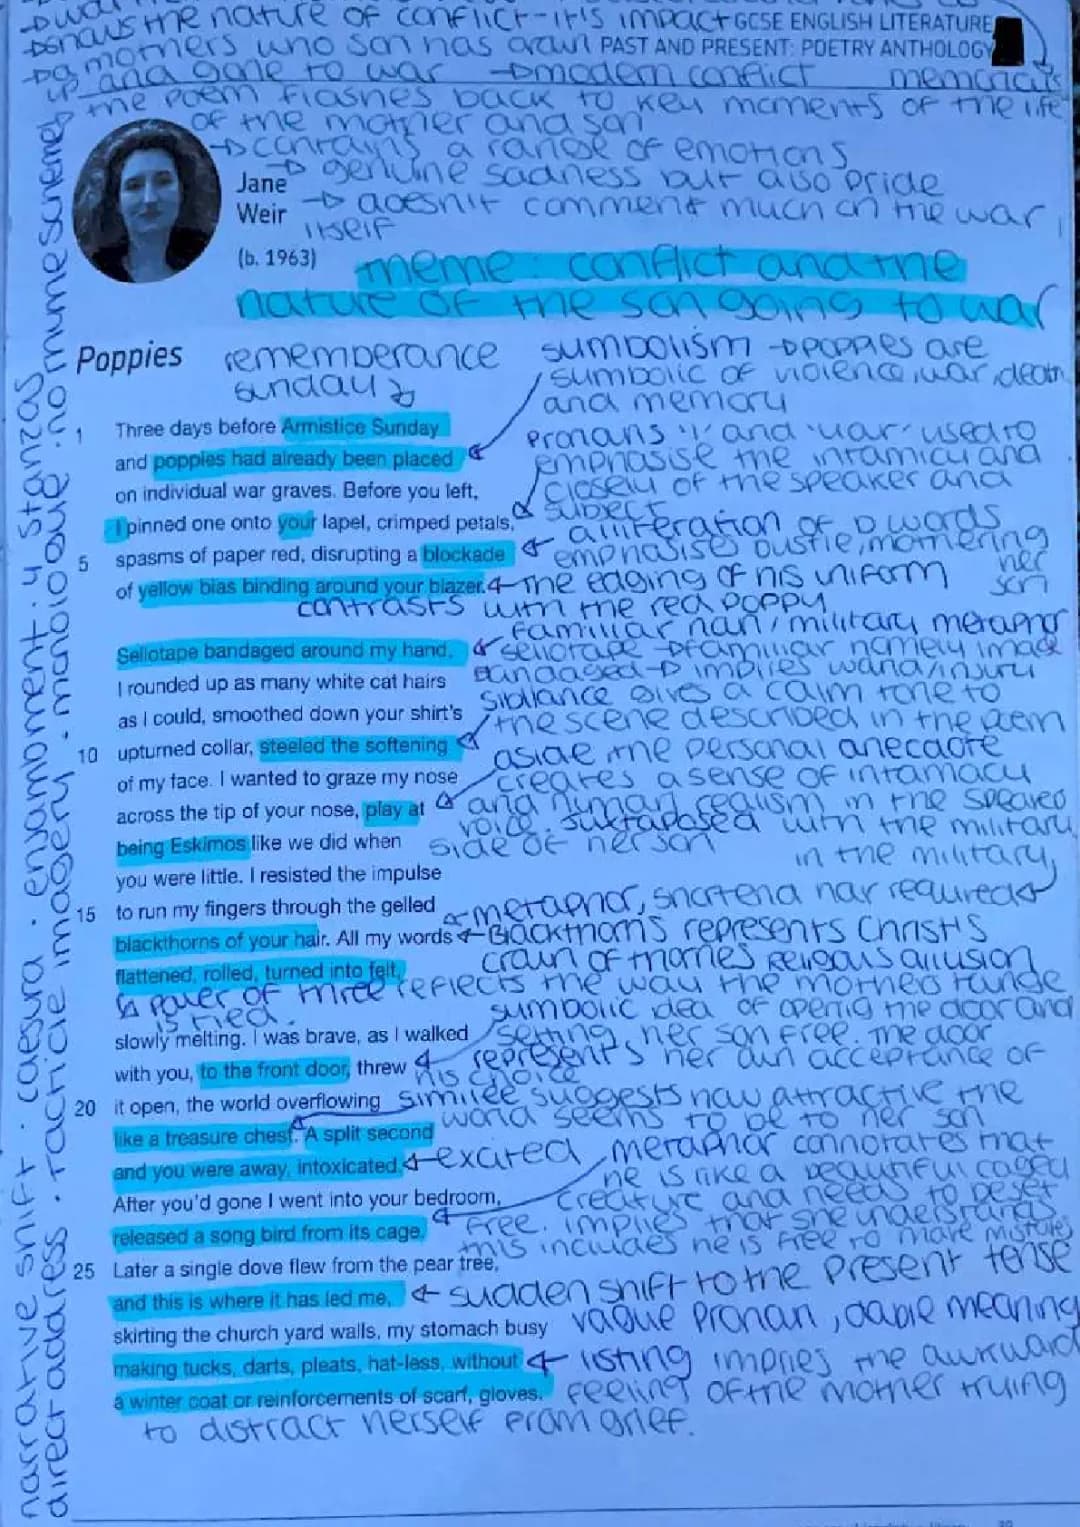 →shows the nature of conflict - it's impact GCSE ENGLISH LITERATURE
→a mothers who son has grown PAST AND PRESENT: POETRY ANTHOLOGY
up and gone to war →modern conflict memorials
the poem flashes back to key moments of the life
of the mother and son
→contains a range of emotions
→ genuine sadness but also pride
Jane
Weir
→ doesn't comment much on the war
itself
(b. 1963)
theme: conflict and the
nature of the son going to war
Poppies
rememberance
sunday
symbolism →poppies are
symbolic of violence, war, death
and memory
1 Three days before Armistice Sunday
and poppies had already been placed
on individual war graves. Before you left,
I pinned one onto your lapel, crimped petals,
5 spasms of paper red, disrupting a blockade
of yellow bias binding around your blazer.
pronouns 'I' and 'your' used to
emphasise the intamicy and
closely of the speaker and
subject
alliteration of p words
emphasises bustle, mothering
her
son
the edging of his uniform
contrasts with the red poppy
familiar nan/military metaphor
Sellotape bandaged around my hand,
I rounded up as many white cat hairs
as I could, smoothed down your shirt's
10 upturned collar, steeled the softening
of my face. I wanted to graze my nose
across the tip of your nose, play at
being Eskimos like we did when
you were little. I resisted the impulse
15 to run my fingers through the gelled
blackthorns of your hair. All my words
flattened, rolled, turned into felt,
sellotape →familiar homely image
bandaged → implies wand/injury
sibilance gives a calm tone to
the scene described in the poem
aside the personal anecdote
creates a sense of intamacy
and human realism in the speakers
voice. juxtaposed with the military
side of her son
in the military,
metaphor, shortend hair required
Blackthorns represents Christ's
crown of thornes Religous allusion
power of three reflects the way the mothers tounge
is tied.
slowly melting. I was brave, as I walked
with you, to the front door, threw
20 it open, the world overflowing
like a treasure chest. A split second
and you were away, intoxicated.
After you'd gone I went into your bedroom,
released a song bird from its cage.
25 Later a single dove flew from the pear tree,
and this is where it has led me,
skirting the church yard walls, my stomach busy
making tucks, darts, pleats, hat-less, without
a winter coat or reinforcements of scarf, gloves.
symbolic idea of openig the door and
setting her son free. The door
represents her own acceptance of
his choice
similee suggests how attractive the
world seems to be to her son
excited
metaphor connotates that
he is like a beautiful caged
creature and needs to be set
free. implies that she understands
this includes he is free to make mistakes
sudden shift to the present tense
vague pronoun, double meaning
listing implies the awkward
feeling of the mother trying
to distract herself from grief.
narrative shift . caesura . enjambment . 4 stanzas
direct address . tacticle imagery . monologue . no rhyme scheme